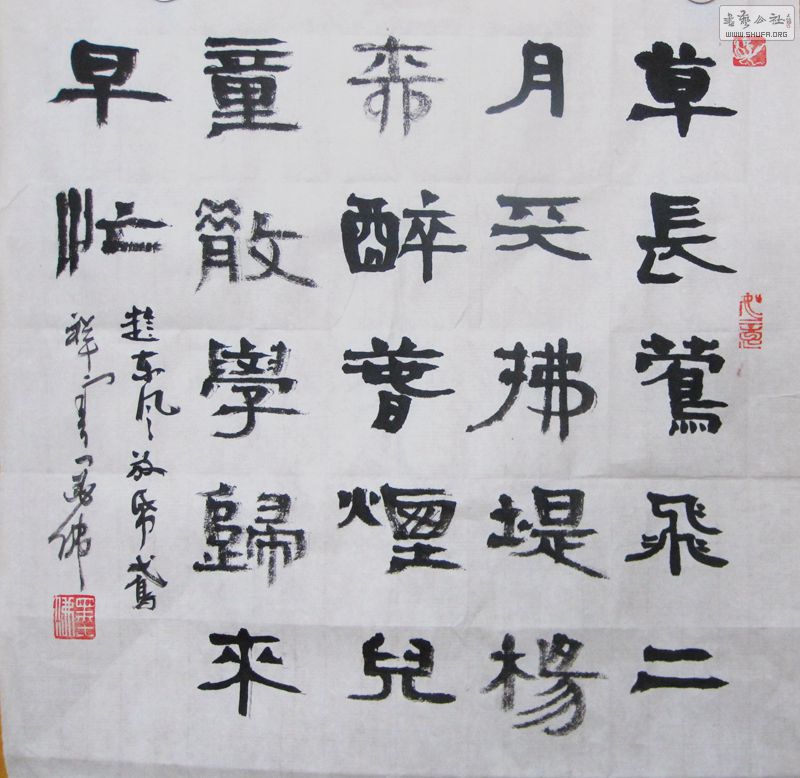 草長鶯飛二
月天拂堤楊
柳醉萅煙兒
童散學歸來
早忙
趂东风放帋鳶
書
如意
書藝公社
WWW.SHUFA.ORG